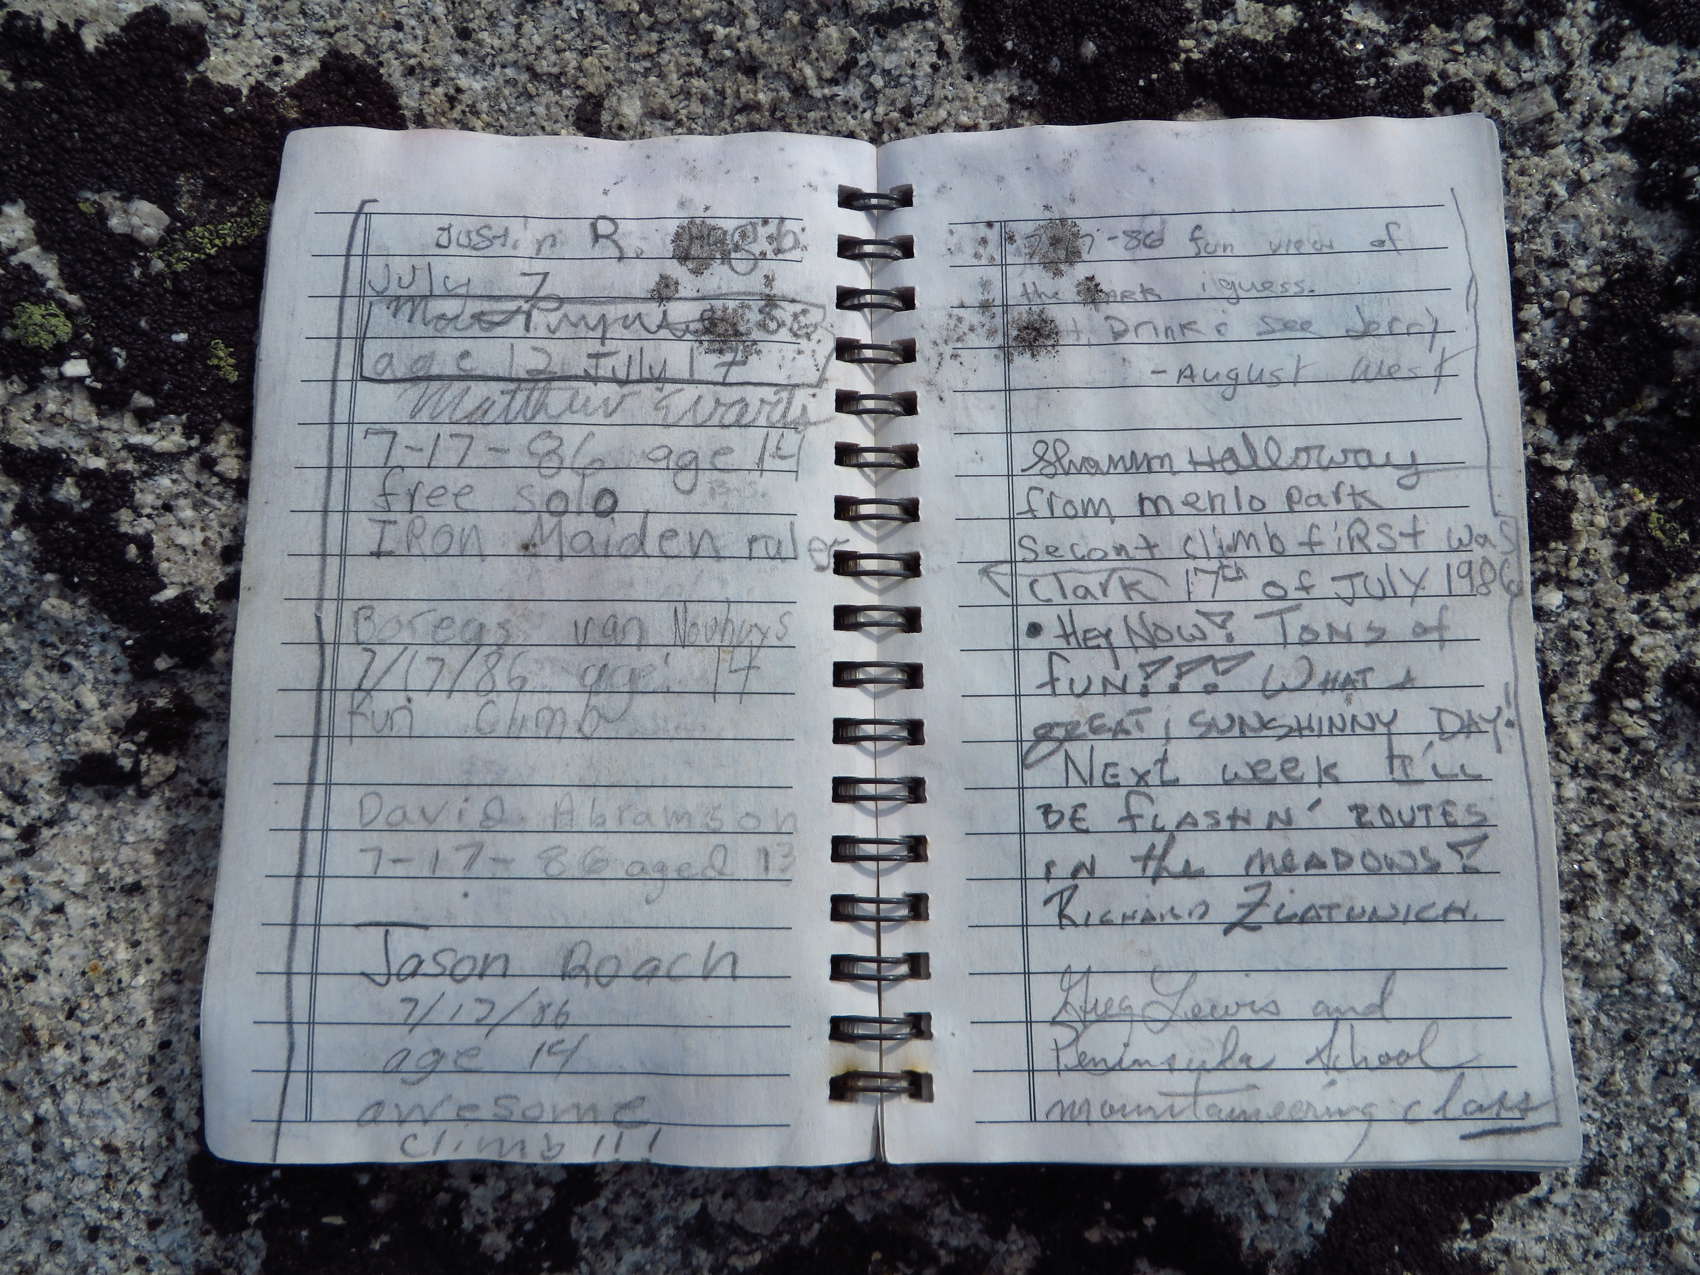 Justin R.
July 7
age 12 July 17
Matthew Evarts
7-17-86 age 14
free solo
IRon Maiden rules
Boreas van Nouhuys
7/17/86 age: 14
fun Climb
David Abramson
7-17-86 aged 13
Jason Roach
7/17/86
age 14
awesome
climb!!!
-86 fun view of
the iguess.
Drink & See Jerry
- August West
Shannon Halloway
from menlo park
Second climb fiRSt was
Clark 17th of JULY 1986
• Hey Now! Tons of
fun!!! What a
great, sunshinny day!
Next week I'll
be flashn' routes
in the meadows!
Richard Zlatunich
Greg Lewis and
Peninsula School
mountaineering class